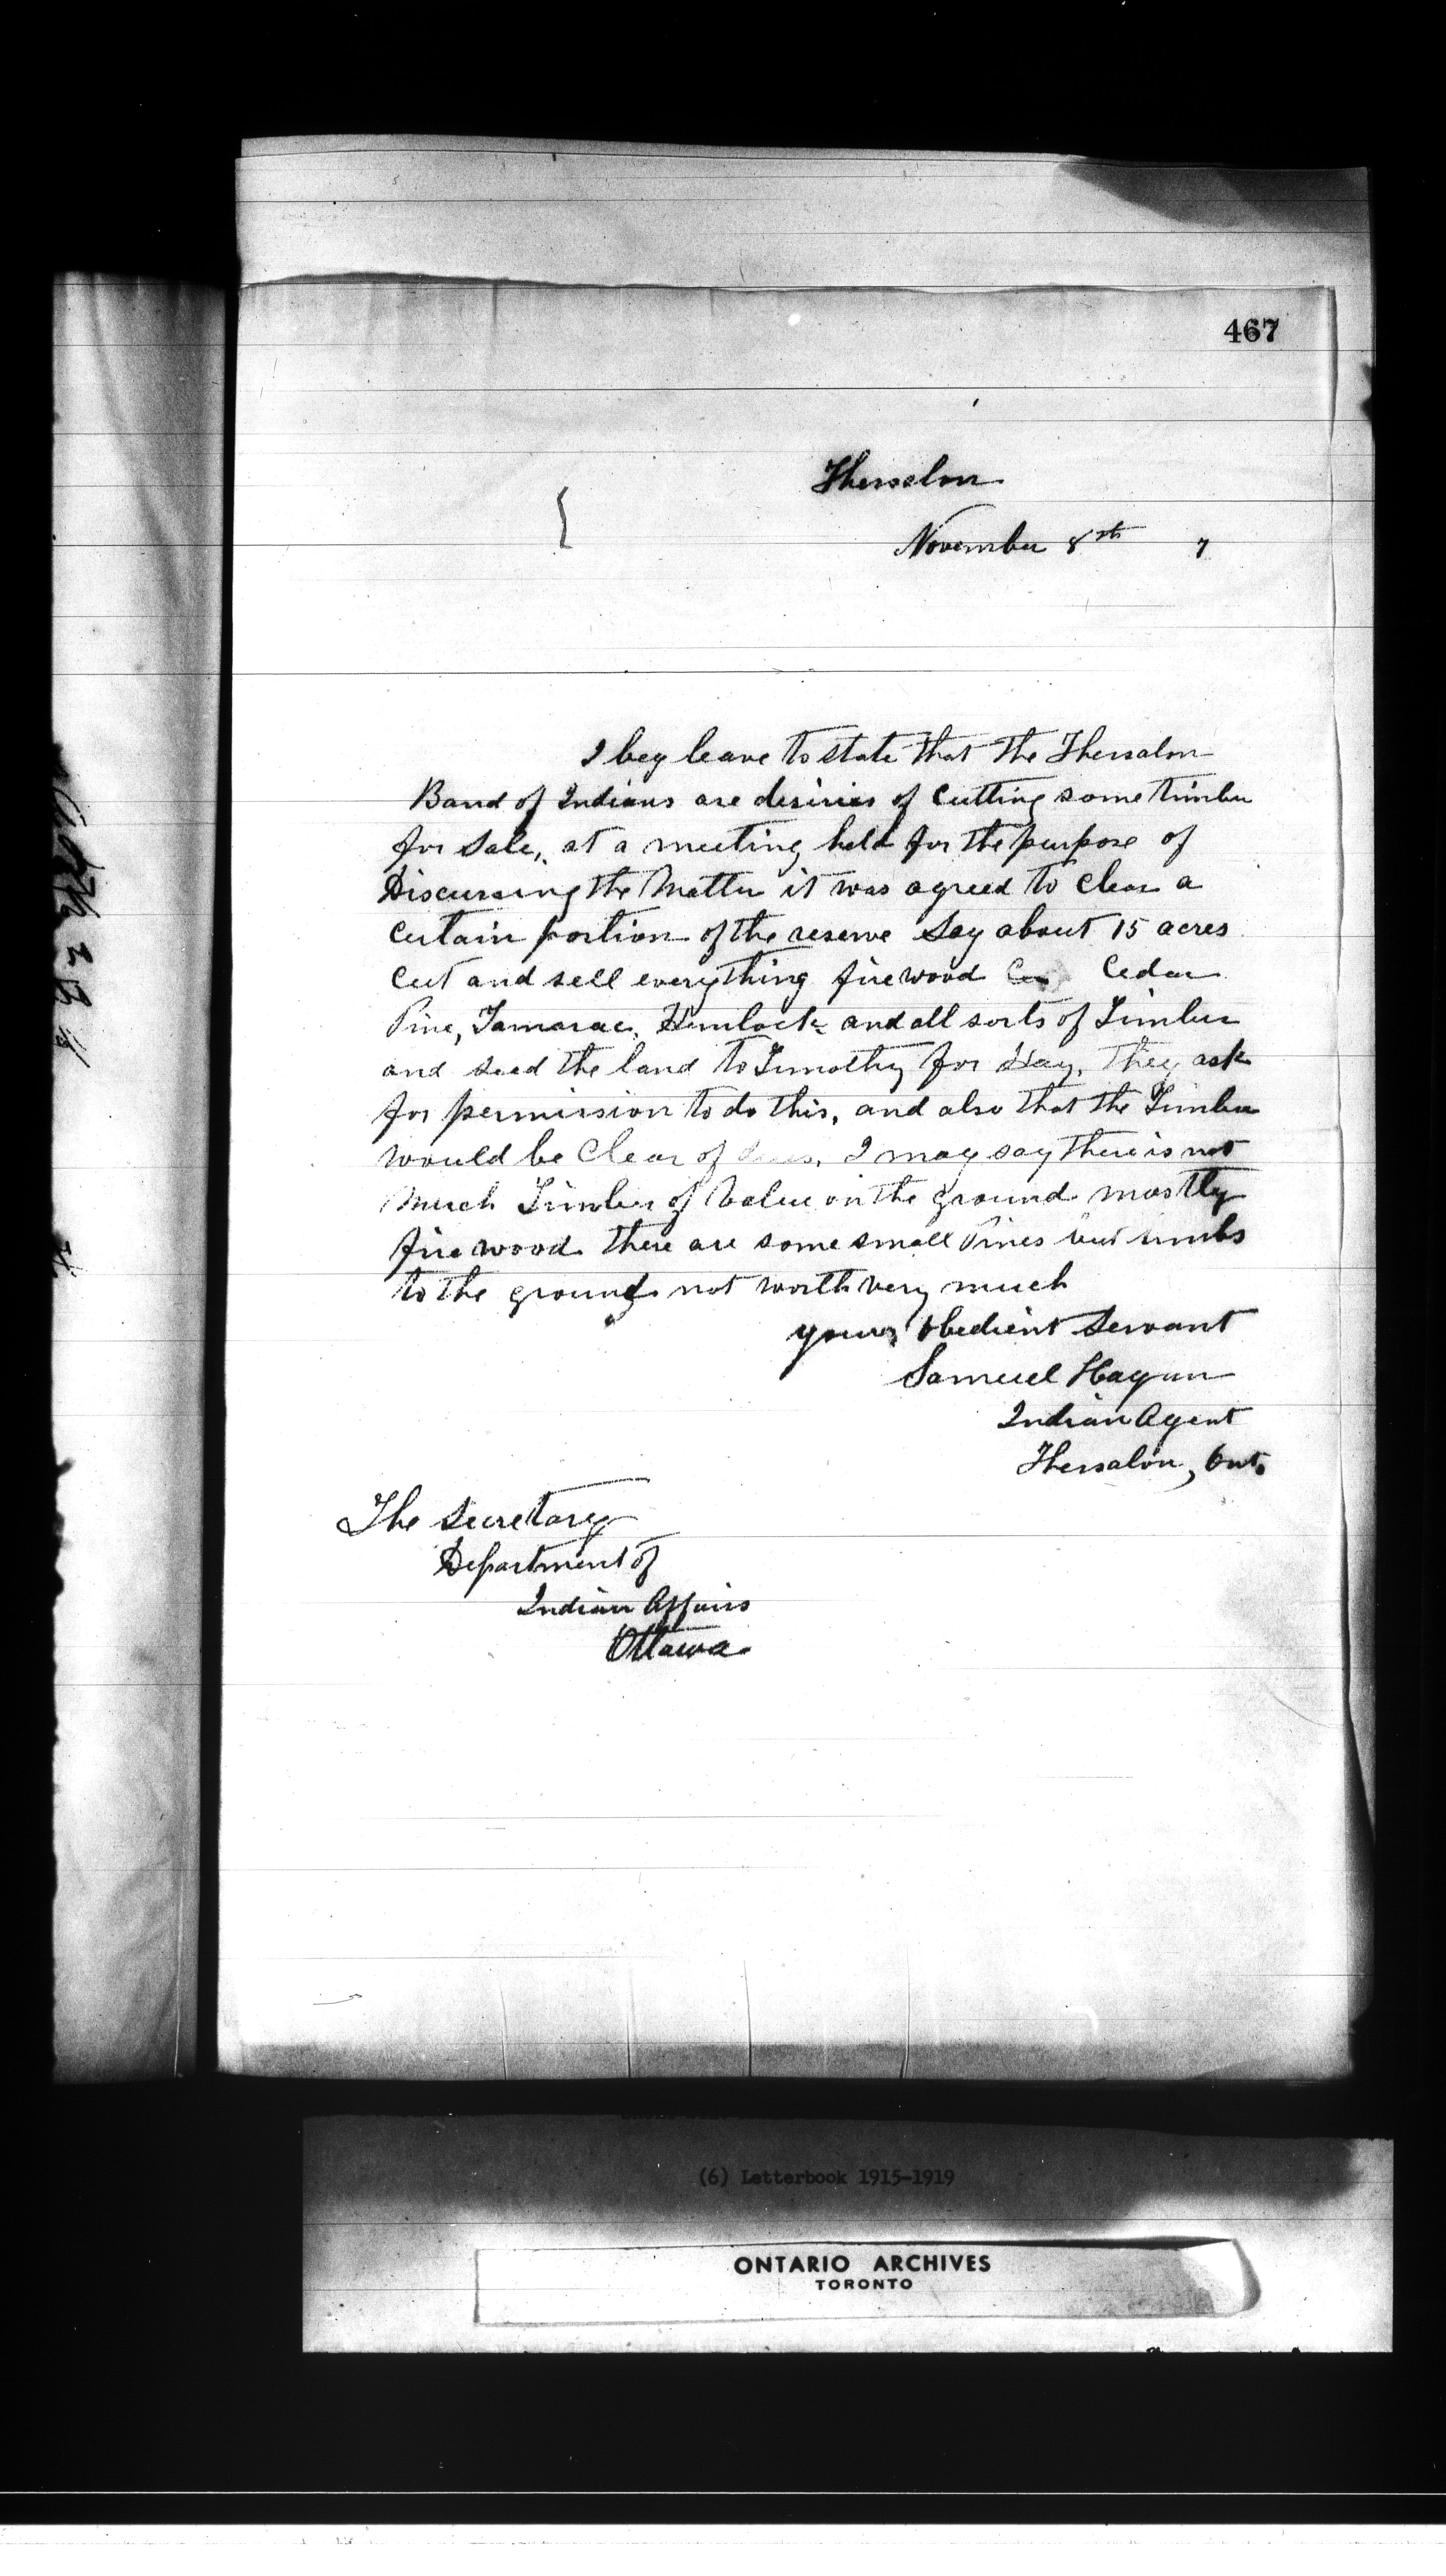 467
Thessalon
November 8th 7
I beg leave to state that the Thessalon
Band of Indians are desiries of Cutting some timber
for Sale, at a meeting held for the purpose of
Discussing the Matter it was agreed to Clear a
Certain portion of the reserve Say about 15 acres
Cut and sell everything firewood Cedar
Pine, Tamarac, Hemlock and all sorts of Timber
and seed the land to Timothy for Hay. They ask
for permission to do this, and also that the Timber
would be Clear of dues. I may say there is not
Much Timber of Value on the ground mostly
fire wood there are some small Pines but limbs
to the ground not worth very much
your obedient Servant
Samuel Hagan
Indian Agent
Thessalon, Ont.
The Secretary
Department of
Indian Affairs
Ottawa
(6) Letterbook 1915-1919
ONTARIO ARCHIVES
TORONTO